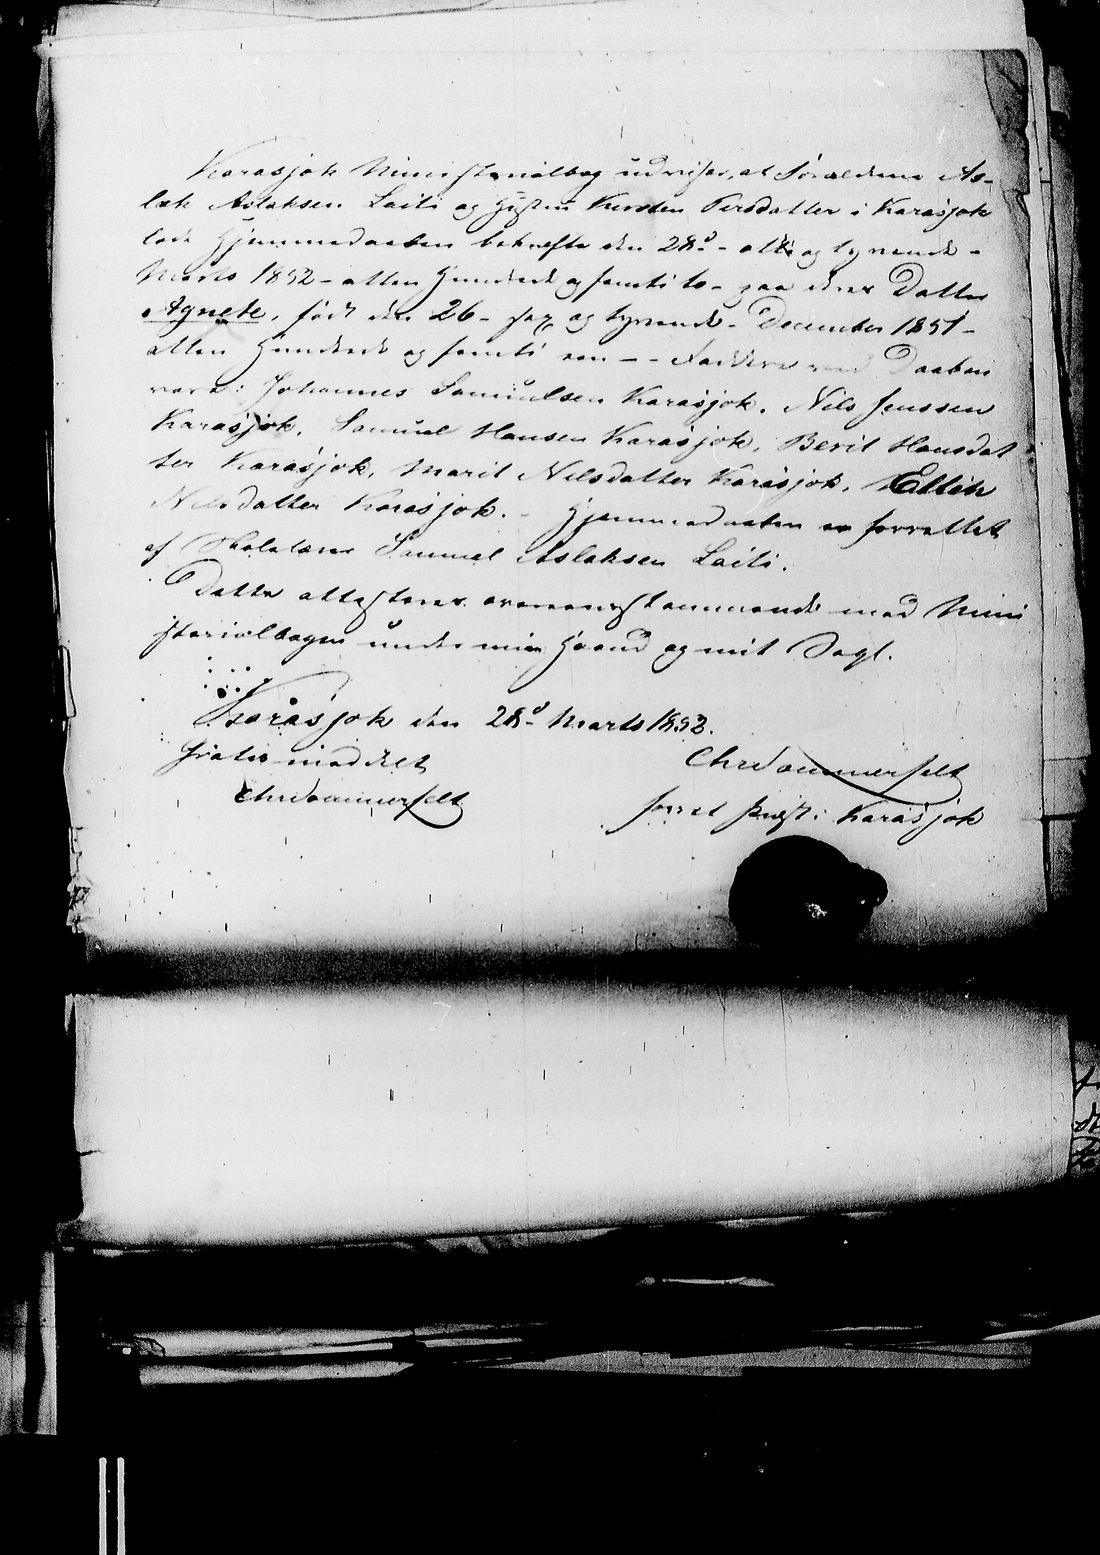 Karasjok Ministerialbog udviser, at Forældrene As-
lak Aslaksen Laiti og Hustru Kirsten Persdatter i Karasjok
lode Hjemmedaaben bekræfte den 28d - otte og tyvende -
Marts 1852 - atten Hundrede og femti to - paa deres Datter
Agnete, født den 26 - sex og tyvende - December 1851 -
atten Hundrede og femti een - - Faddere ved Daaben
vare: Johannes Samuelsen Karasjok, Nils Jenssen
Karasjok, Samuel Hansen Karasjok, Berit Hansdat
ter Karasjok, Marit Nilsdatter Karasjok, Ellen
Nilsdatter Karasjok. - Hjemmedaaben er forrettet
af Skolelærer Samuel Aslaksen Laiti.
Dette attesteres overensstemmende med Mini
sterialbogen under min Haand og mit Segl.
Karasjok den 28d Marts 1852.
Gratis meddelt
Chr Sommerfelt
Chr Sommerfelt
Præst i Karasjok